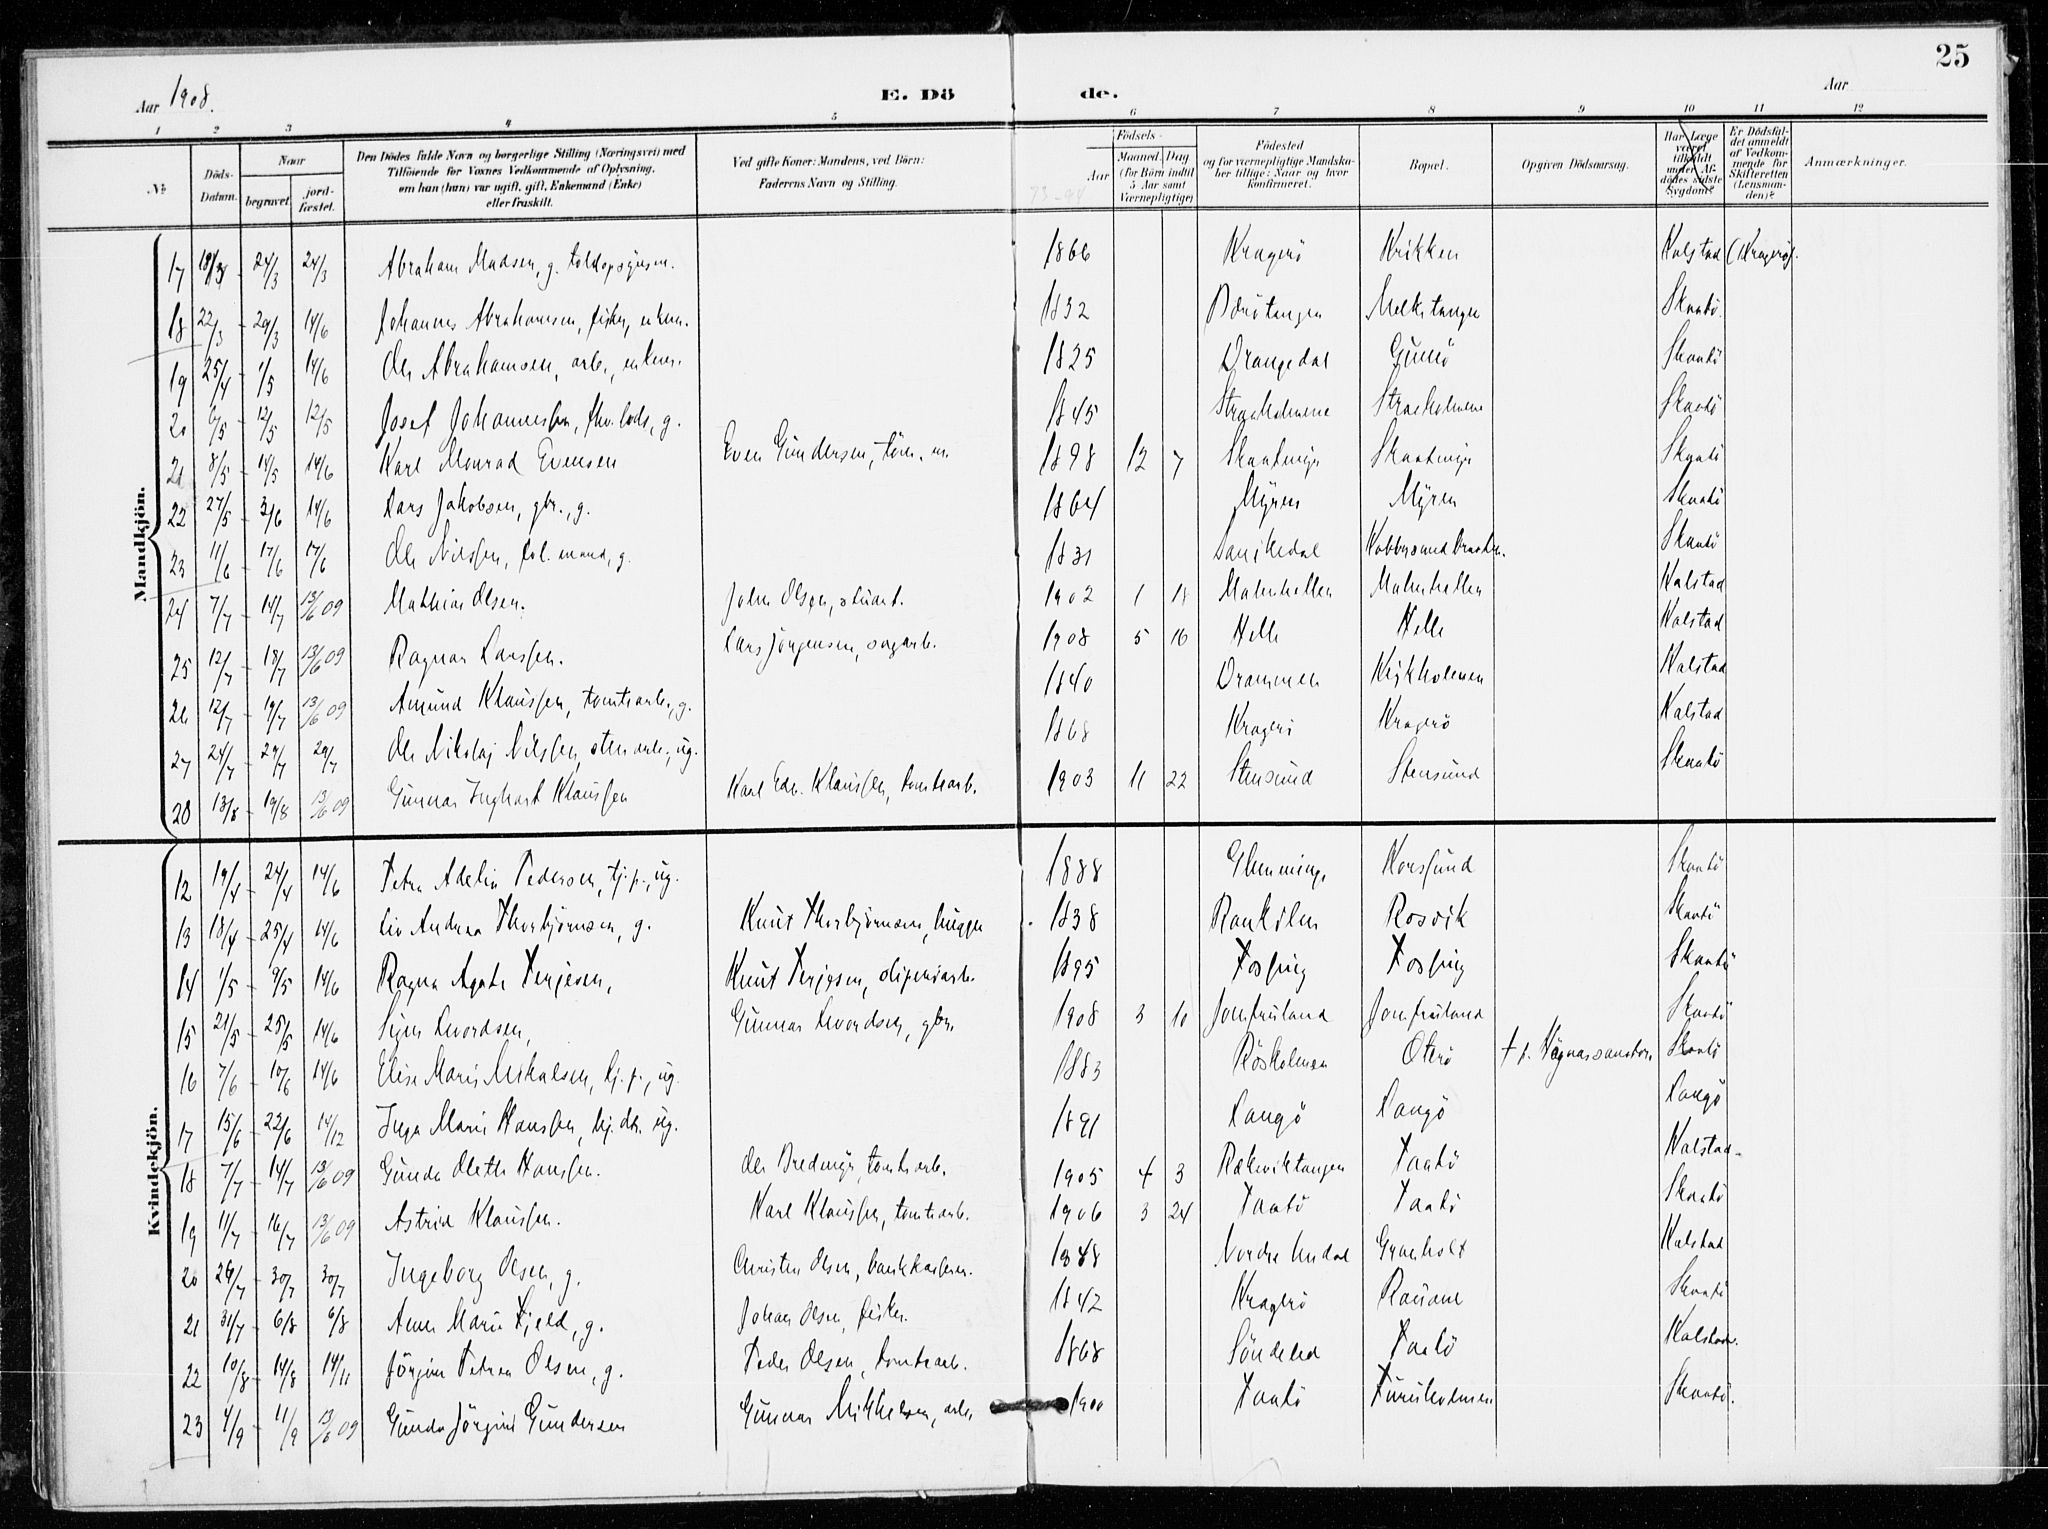 25
Aar 1908. E. Dö de. Aar
1 2 3 4 5 6 7 8 9 10 11 12
No. Döds-Datum. Naar begravet. jord-fæstet. Den Dödes fulde Navn og borgerlige Stilling (Næringsvei) med Tilföiende for Voxnes Vedkommende af Oplysning, om han (hun) var ugift, gift, Enkemand (Enke) eller fraskilt. Ved gifte Koner: Mandens, ved Börn: Faderens Navn og Stilling. Födsels- Aar Maaned. Dag (for Börn indtil 5 Aar samt Værnepligtige) Födested og for værnepligtige Mandska-ber tillige: Naar og hvor konfirmeret. Bopæl. Opgiven Dödsaarsag. Har Læge været tilkaldt under Af-dödes sidste Sygdom? Er Dödsfal-det anmeldt af Vedkom-mende for Skifteretten (Lensman-den)? Anmærkninger.
73-94
Mandkjön.
17 18/3 - 24/3 24/3 Abraham Madsen, g. toldopsynsm. 1866 Kragerö Krikken Kalstad (Kragerö).
18 22/3 - 29/3 14/6 Johannes Abrahamsen, fisker, enkem. 1832 Melkstangen Skaatö.
19 25/4 - 1/5 14/6 Ole Abrahamsen, arb., enkem. 1825 Drangedal Gumö Skaatö
20 6/5 - 12/5 12/5 Josef Johannessen, fhv. lods, g. 1845 Straaholmene Straaholmene Skaatö
21 8/5 - 14/5 14/6 Karl Monrad Evensen Even Gundersen, töm.m. 1898 12 7 Skaatmyr Skaatmyr Skaatö
22 27/5 - 3/6 14/6 Lars Jakobsen, gbr., g. 1864 Myren Myren Skaatö
23 11/6 - 17/6 17/6 Ole Nilssen, fol.mand, g. 1831 Sanikedal Skaatö
24 7/7 - 14/7 13/6 09 Mathias Olsen. John Olsen, stuert. 1902 1 18 Malmhellen Malmhellen Kalstad
25 12/7 - 18/7 13/6 09 Ragnar Larssen. Lars Jörgensen, sagarb. 1908 5 16 Helle Helle Kalstad
26 12/7 - 19/7 13/6 09 Amund Klaussen, tomtearb., g. 1840 Drammen Kirkholmen Kalstad
27 24/7 - 29/7 29/7 Ole Nikolaj Nilssen, stenarb., ug. 1868 Kragerö Kragerö Kalstad
28 13/8 - 19/8 13/6 09 Gunnar Inghart Klaussen Karl Edv. Klaussen, tomtearb. 1903 11 22 Stensund Stensund Skaatö
Kvindekjön.
12 19/4 - 24/4 14/6 Petra Adelia Pedersen, tj.p., ug. 1888 Glemminge Korssund Skaatö
13 18/4 - 25/4 14/6 Liv Andrea Thorbjörnsen, g. Knut Thorbjörnsen, hugger. 1838 Rosvik Skaatö
14 1/5 - 9/5 14/6 Ragna Agate Terjesen, Knut Terjesen, sliperiarb. 1895 Fossing Fossing Skaatö
15 21/5 - 25/5 14/6 Signe Sivordsen, Gunnar Sivordsen, gbr. 1908 3 10 Jomfruland Jomfruland Skaatö
16 7/6 - 10/6 14/6 Elise Marie Mikalsen, tj.p., ug. 1883 Röskolmen Oterö † p. Skaatö
17 15/6 - 22/6 14/12 Inga Marie Hanssen, hj. dtr. ug. 1891 Langö Langö Langö
18 7/7 - 14/7 13/6 09 Gunda Olethe Hanssen. Ole Bredmyr, tomtearb. 1905 4 3 Rækeviktangen Taatö Kalstad.
19 11/7 - 16/7 13/6 09 Astrid Klaussen. Karl Klaussen, tomtearb. 1906 3 24 Taatö Taatö Skaatö
20 26/7 - 30/7 30/7 Ingeborg Olsen, g. Christen Olsen, bankkasserer. 1848 Nordre Undal Graaholt Kalstad
21 31/7 - 6/8 6/8 Anne Marie Fjeld, g. Johan Olsen, fisker. 1842 Kragerö Rauane Skaatö
22 10/8 - 14/8 14/11 Jörgine Petrea Olsen, g. Peder Olsen, tomtearb. 1868 Söndeled Taatö Kalstad.
23 4/9 - 11/9 13/6 09 Gunda Jörgine Gundersen Gunnar Mikkelsen, arb. 1900 Taatö Furuholmen Skaatö.